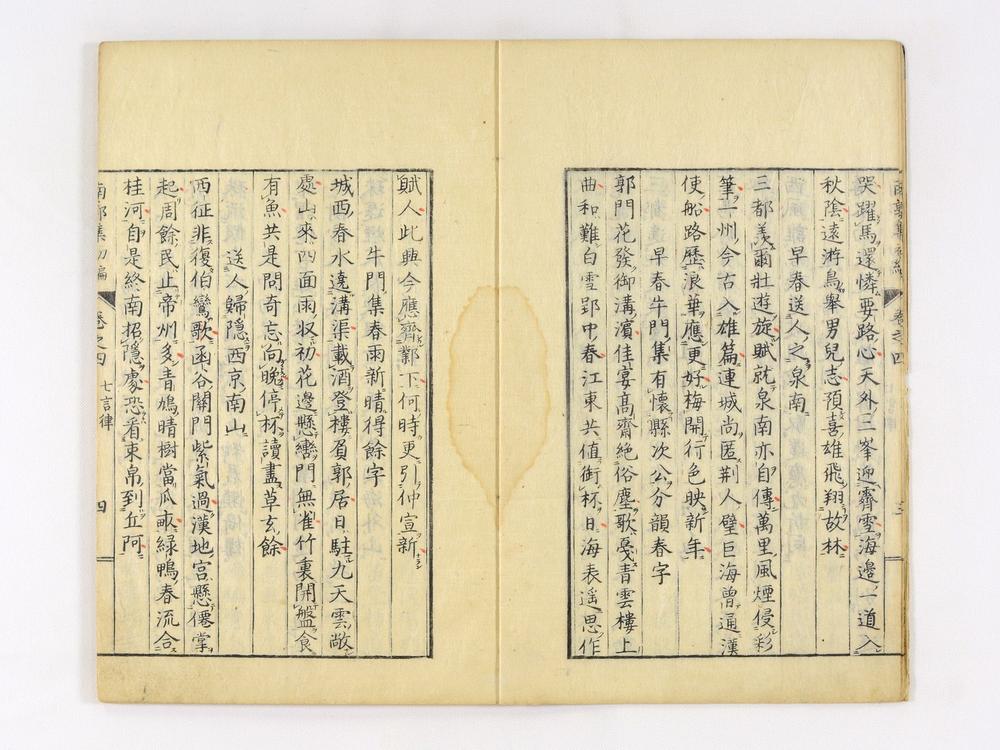 哭躍馬還憐要路心天外三峯迎霽雪海邊一道入
秋陰遠游鳥舉男兒志預喜雄飛翔故林
早春送人之泉南
三都羨爾壯遊旋賦就泉南亦自傳萬里風煙侵彩
筆一州今古入雄篇連城尚匿荆人璧巨海曽通漢
使船路歷浪華應更好梅開行色映新年
早春牛門集有懷縣次公分韻春字
郭門花發御溝濱佳宴高齋絶俗塵歌戞青雲樓上
曲和難白雪郢中春江東共值銜杯日海表遥思作
賦人此興今應齊鄴下何時更引仲宣新
牛門集春雨新晴得餘字
城西春水遶溝渠載酒登樓負郭居日駐九天雲敞
處山來四面雨収初花邊懸轡門無雀竹裏開盤食
有魚共是問奇忘向晚停杯讀盡草玄餘
送人歸隱西京南山
西征非復伯鸞歌函谷關門紫氣過漢地宮懸僊掌
起周餘民止帝州多青鳩晴樹當瓜畝綠鴨春流合
桂河自是終南招隱處恐看束帛到丘阿
南郭集初編 卷之四 七言律 四